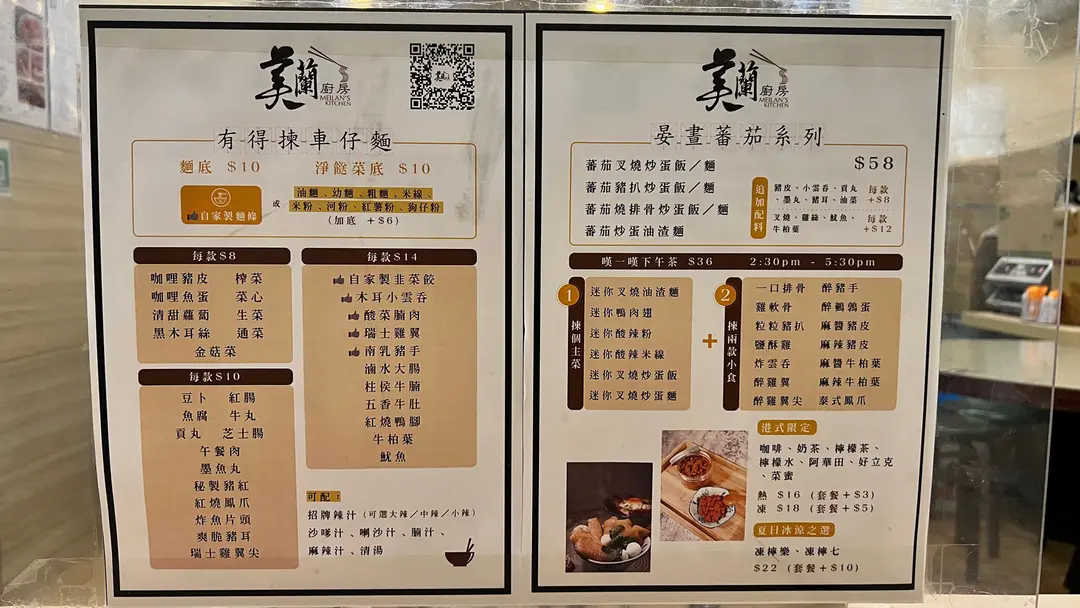 美蘭廚房
MEILAN'S
KITCHEN
有得揀車仔麵
麵底 $10 淨餸菜底 $10
自家製麵條
或
油麵、幼麵、粗麵、米線、
米粉、河粉、紅薯粉、狗仔粉
(加底 +$6)
每款$8
咖哩豬皮 榨菜
咖哩魚蛋 菜心
清甜蘿蔔 生菜
黑木耳絲 通菜
金菇菜
每款$10
豆卜 紅腸
魚腐 牛丸
貢丸 芝士腸
午餐肉
墨魚丸
秘製豬紅
紅燒鳳爪
炸魚片頭
爽脆豬耳
瑞士雞翼尖
每款$14
自家製韭菜餃
木耳小雲吞
酸菜腩肉
瑞士雞翼
南乳豬手
滷水大腸
柱侯牛腩
五香牛肚
紅燒鴨腳
牛柏葉
魷魚
可配：
招牌辣汁（可選大辣／中辣／小辣）
沙嗲汁、喇沙汁、腩汁、
麻辣汁、清湯
美蘭廚房
MEILAN'S
KITCHEN
晏晝蕃茄系列
蕃茄叉燒炒蛋飯／麵 $58
蕃茄豬扒炒蛋飯／麵
蕃茄燒排骨炒蛋飯／麵
蕃茄炒蛋油渣麵
追加配料
豬皮、小雲吞、貢丸
、墨丸、豬耳、油菜
每款
+$8
叉燒、雞絲、魷魚、
牛柏葉
每款
+$12
嘆一嘆下午茶 $36 2:30pm - 5:30pm
1
揀個主菜
迷你叉燒油渣麵
迷你鴨肉翅
迷你酸辣粉
迷你酸辣米線
迷你叉燒炒蛋飯
迷你叉燒炒蛋麵
+
2
揀兩款小食
一口排骨 醉豬手
雞軟骨 醉鵪鶉蛋
粒粒豬扒 麻醬豬皮
鹽酥雞 麻辣豬皮
炸雲吞 麻醬牛柏葉
醉雞翼 麻辣牛柏葉
醉雞翼尖 泰式鳳爪
港式限定
咖啡、奶茶、檸檬茶、
檸檬水、阿華田、好立克
、菜蜜
熱 $16 (套餐+$3)
凍 $18 (套餐+$5)
夏日冰涼之選
凍檸樂、凍檸七
$22 (套餐+$10)